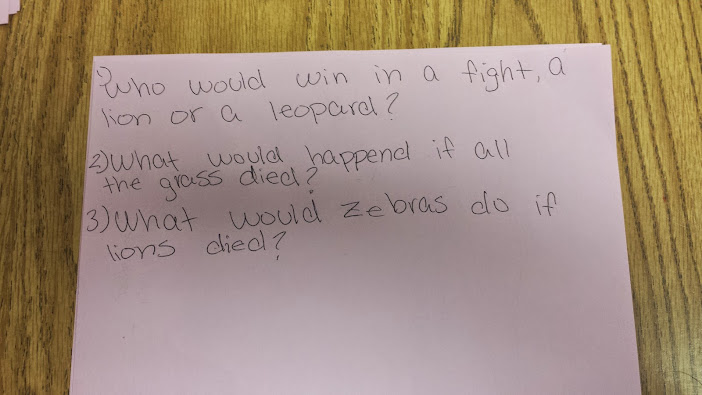 1) Who would win in a fight, a
lion or a leopard?
2) What would happend if all
the grass died?
3) What would zebras do if
lions died?